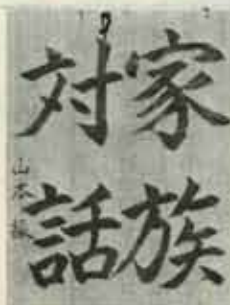 家族
対話
山本